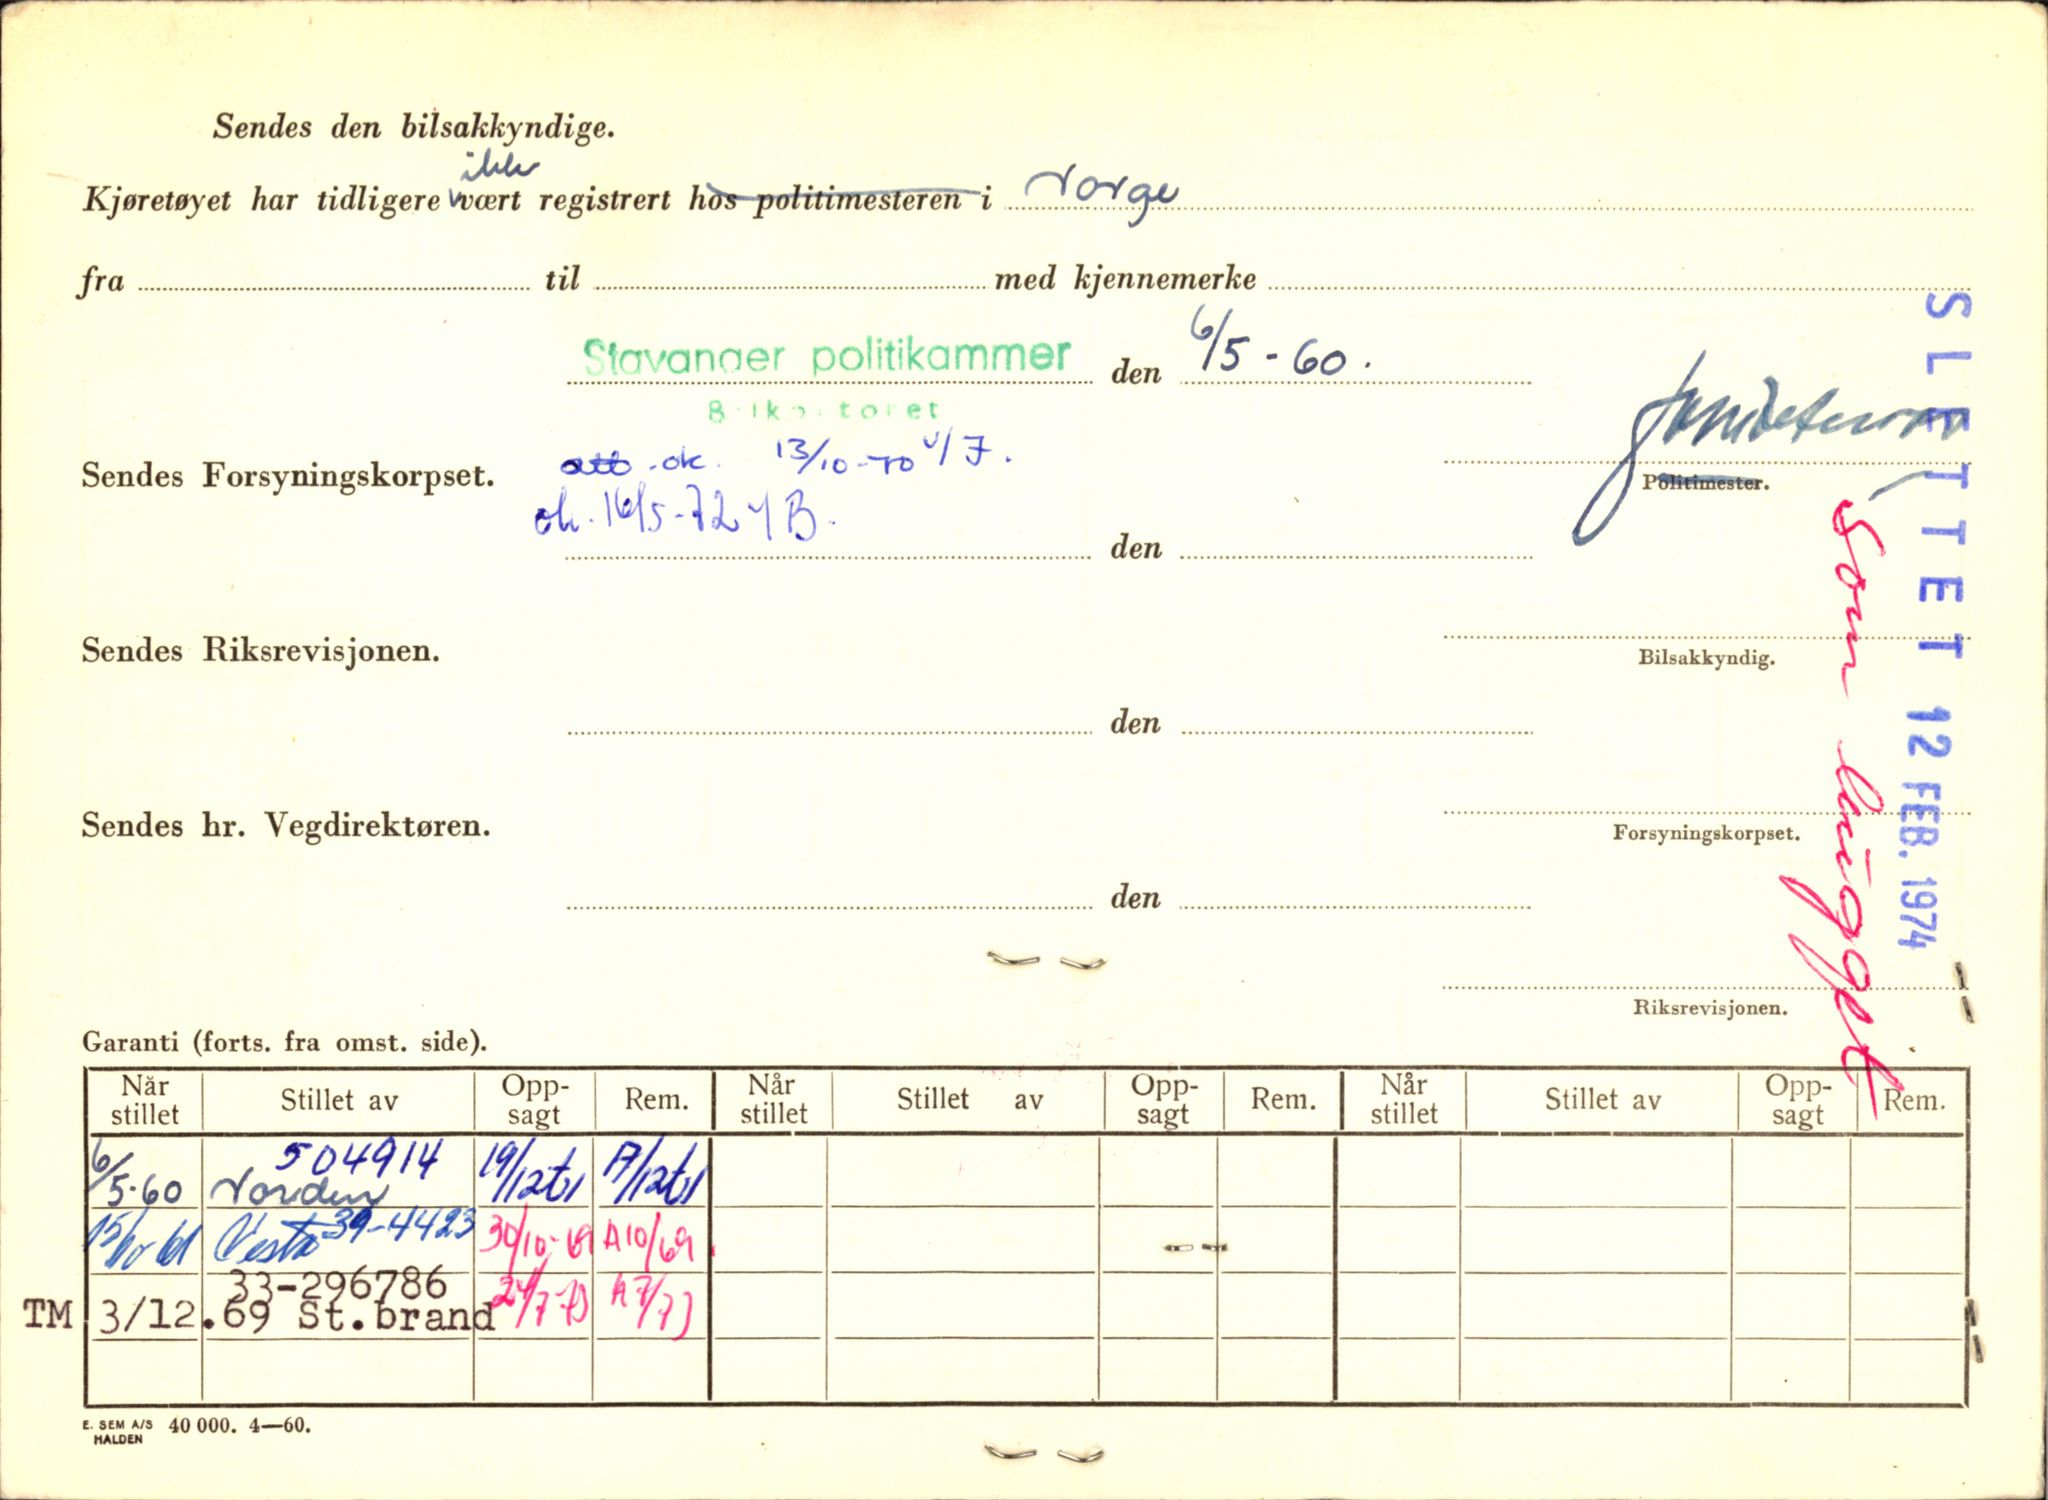 Sendes den bilsakkyndige.
ikke
Kjøretøyet har tidligere vært registrert hos politimesteren i Norge
fra til med kjennemerke
Stavanger politikammer den 6/5-60.
Bilkontoret
Politimester.
Sendes Forsyningskorpset. ok. 13/10-70
ok. 16/5-72
den
Bilsakkyndig.
Sendes Riksrevisjonen.
den
Forsyningskorpset.
Sendes hr. Vegdirektøren.
den
Riksrevisjonen.
SLETTET 12 FEB. 1974
Som hugget
Garanti (forts. fra omst. side).
Når stillet Stillet av Opp-sagt Rem. Når stillet Stillet av Opp-sagt Rem. Når stillet Stillet av Opp-sagt Rem.
504914
6/5-60 Norden 19/12-61 A/12-61
Vesta 39-4423 30/10-69 A10/69
33-296786
TM 3/12.69 St.brand 24/7-73 A7/73
E. SEM A/S HALDEN 40 000. 4—60.